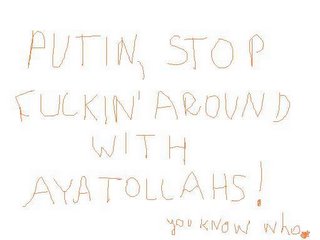 PUTIN, STOP
FUCKIN' AROUND
WITH
AYATOLLAHS!
you know who.